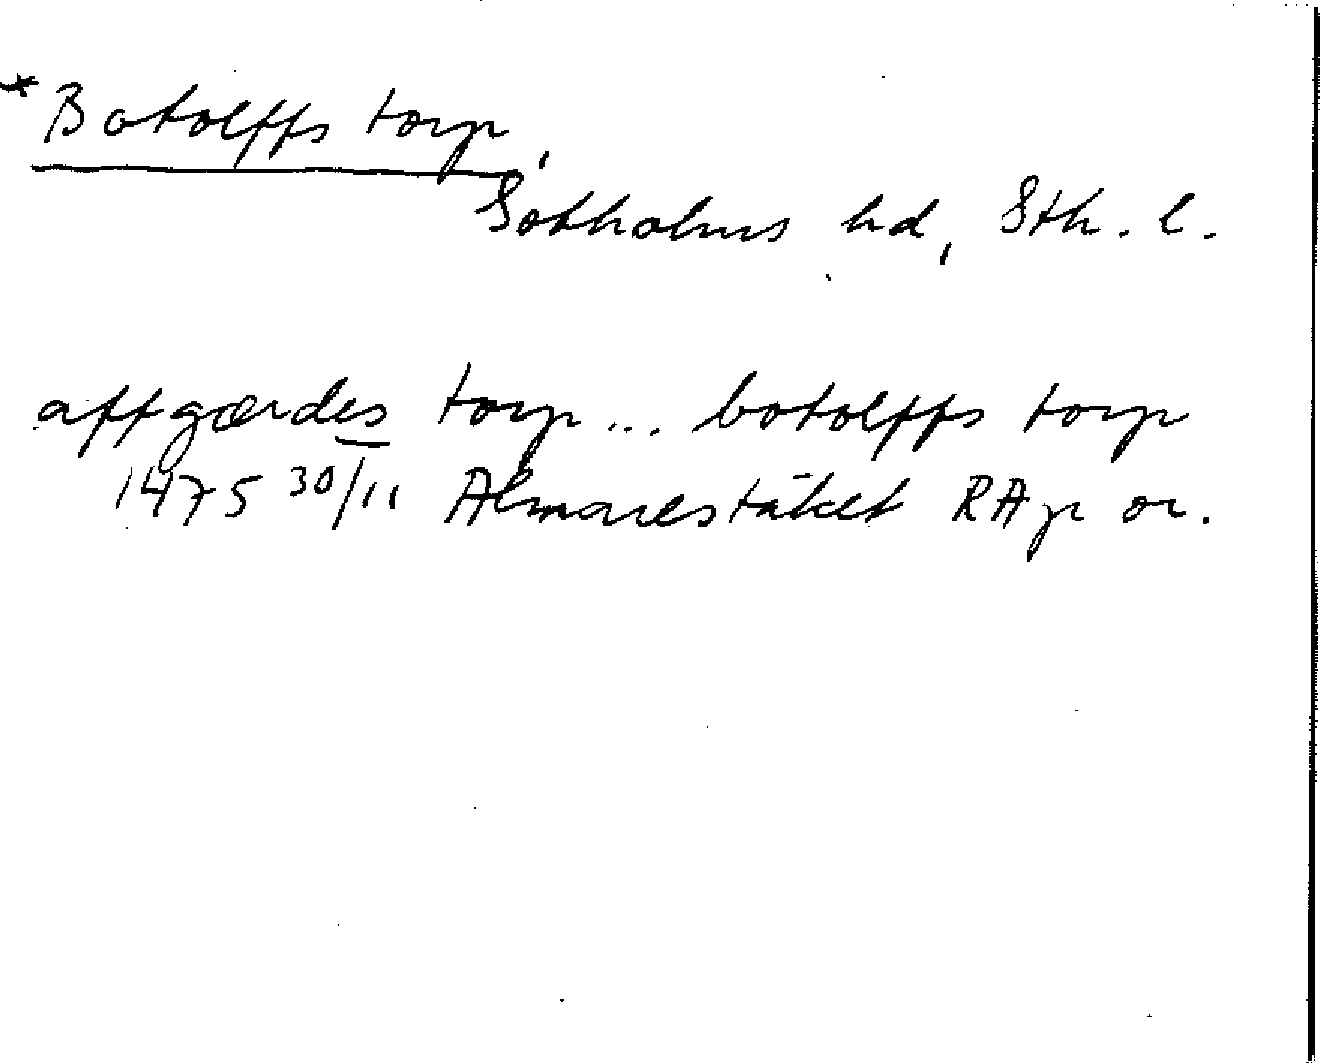 *Botolffs torp,
Sotholms hd, Sth. l.
affgærdes torp ... botolffs torp
1475 30/11 Almarestäket RAp or.